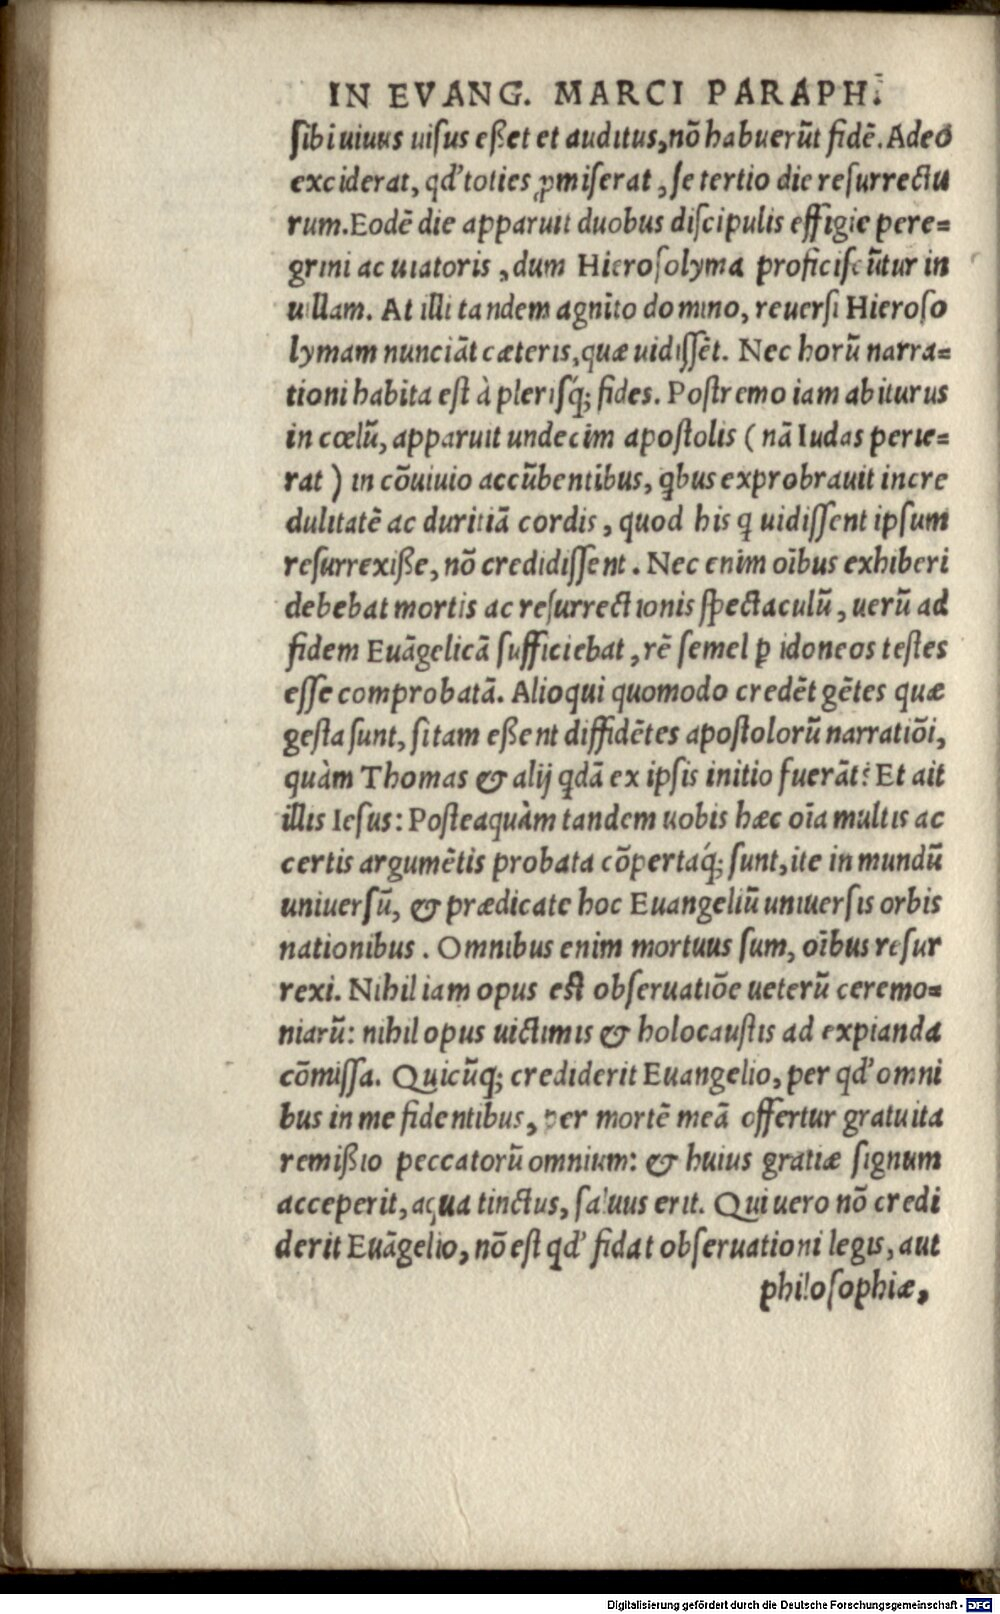 IN EVANG. MARCI PARAPH.
ſibi uiuus uiſus eßet et auditus, nõ habuerũt fidẽ. Adeo
exciderat, qď toties ꝓmiſerat, ſe tertio die reſurrectu
rum. Eodẽ die apparuit duobus diſcipulis effigie pere=
grini ac uiatoris, dum Hieroſolyma proficiſcũtur in
uillam. At illi tandem agnito domino, reuerſi Hieroſo
lymam nunciãt cæteris, quæ uidiſſẽt. Nec horũ narra=
tioni habita eſt à pleriſq́; fides. Poſtremo iam abiturus
in cœlũ, apparuit undecim apoſtolis ( nã Iudas perie=
rat ) in cõuiuio accũbentibus, q̃bus exprobrauit incre
dulitatẽ ac duritiã cordis, quod his q̃ uidiſſent ipſum
reſurrexiße, nõ credidiſſent. Nec enim oĩbus exhiberi
debebat mortis ac reſurrectionis ſpectaculũ, uerũ ad
fidem Euãgelicã ſufficiebat, rẽ ſemel ꝑ idoneos teſtes
eſſe comprobatã. Alioqui quomodo credẽt gẽtes quæ
geſta ſunt, ſi tam eßent diffidẽtes apoſtolorũ narratiõi,
quàm Thomas & alij q̃dã ex ipſis initio fuerãt? Et ait
illis Ieſus: Poſteaquàm tandem uobis hæc oĩa multis ac
certis argumẽtis probata cõpertaq́; ſunt, ite in mundũ
uniuerſũ, & prædicate hoc Euangeliũ uniuerſis orbis
nationibus. Omnibus enim mortuus ſum, oĩbus reſur
rexi. Nihil iam opus eſt obſeruatiõe ueterũ ceremo=
niarũ: nihil opus uictimis & holocauſtis ad expianda
cõmiſſa. Quicũq; crediderit Euangelio, per qď omni
bus in me fidentibus, per mortẽ meã offertur gratuita
remißio peccatorũ omnium: & huius gratiæ ſignum
acceperit, aqua tinctus, ſaluus erit. Qui uero nõ credi
derit Euãgelio, nõ eſt qď fidat obſeruationi legis, aut
philoſophiæ,
Digitalisierung gefördert durch die Deutsche Forschungsgemeinschaft - DFG